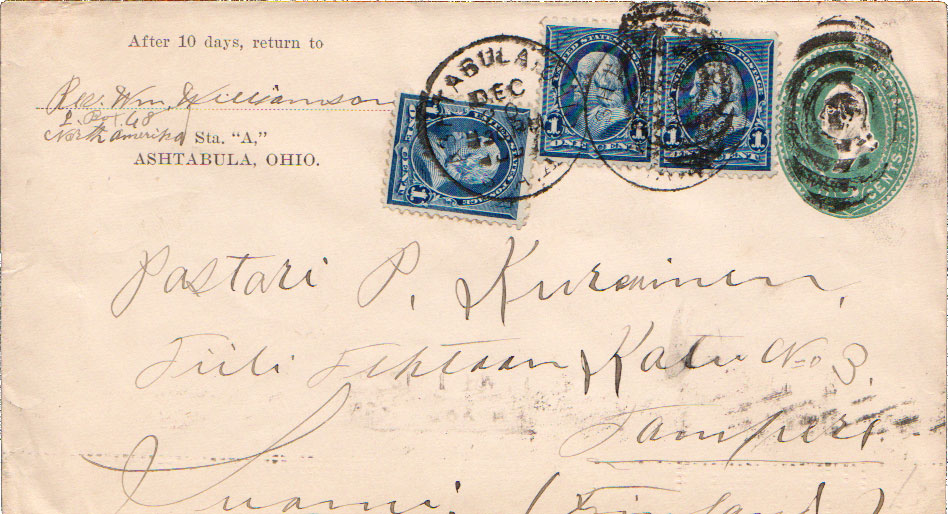 After 10 days, return to
Rev. Wm. Williamson
Box 48
North amerika Sta. "A,"
ASHTABULA, OHIO.
TABULA
DEC
UNITED STATES POSTAGE
1 ONE CENT 1
1 CENT 1
1
CENTS
Pastari P. Kurainen,
Tiili Tehtaan Katu No 3,
Tamperi
Suomi (Finland)